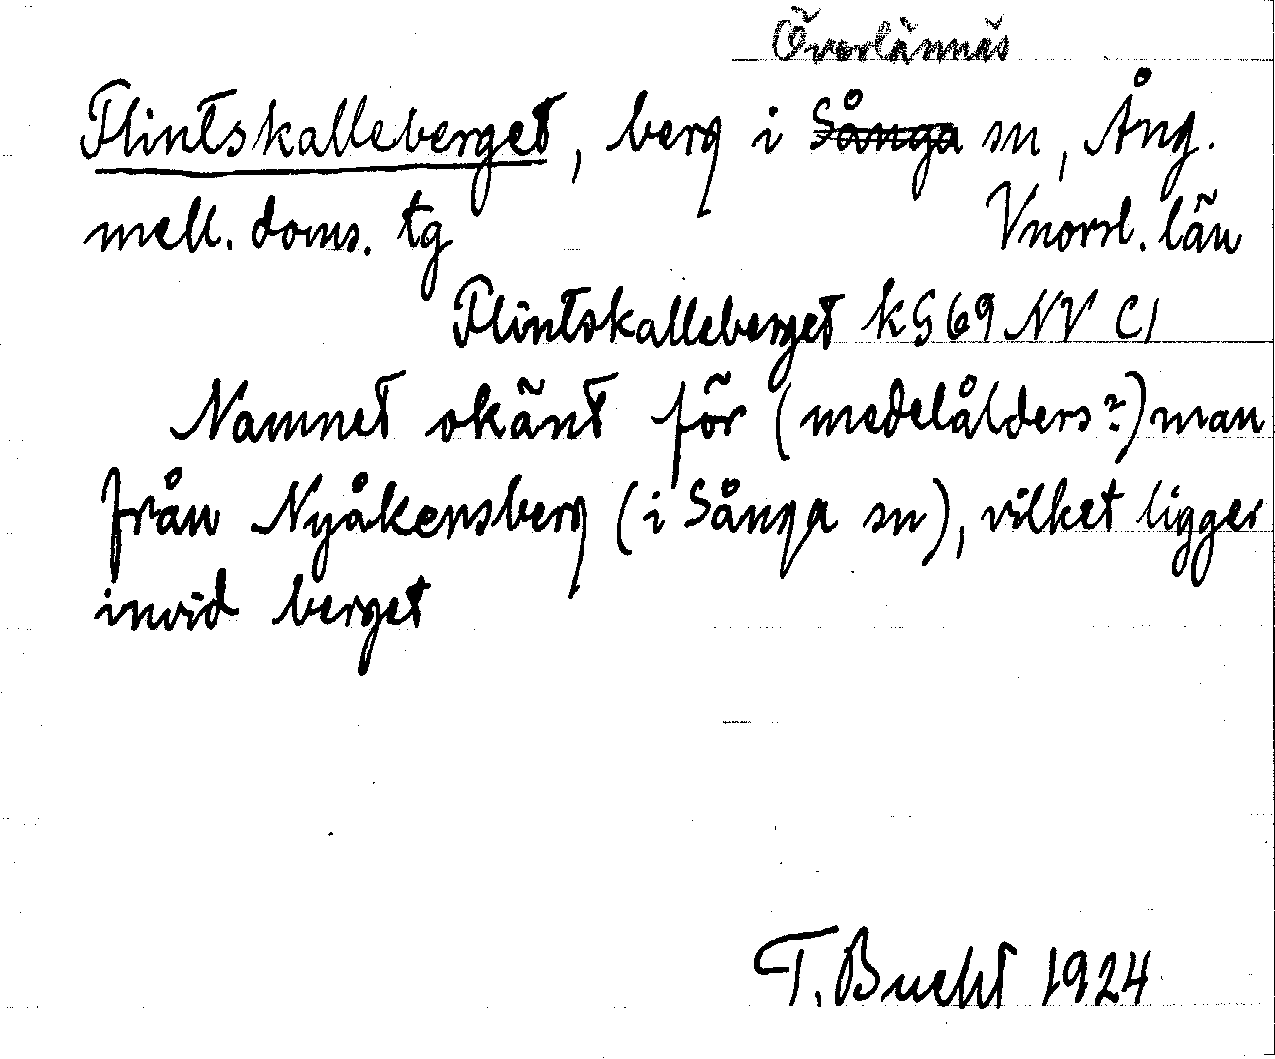 Överlännäs
Flintskalleberget, berg i Sånga sn, Ång.
mell. doms. tg Vnorrl. län
Flintskalleberget kG 69 NV C1
Namnet okänt för (medelålders?) man
från Nyåkersberg (i Sånga sn), vilket ligger
invid berget
T. Bucht 1924